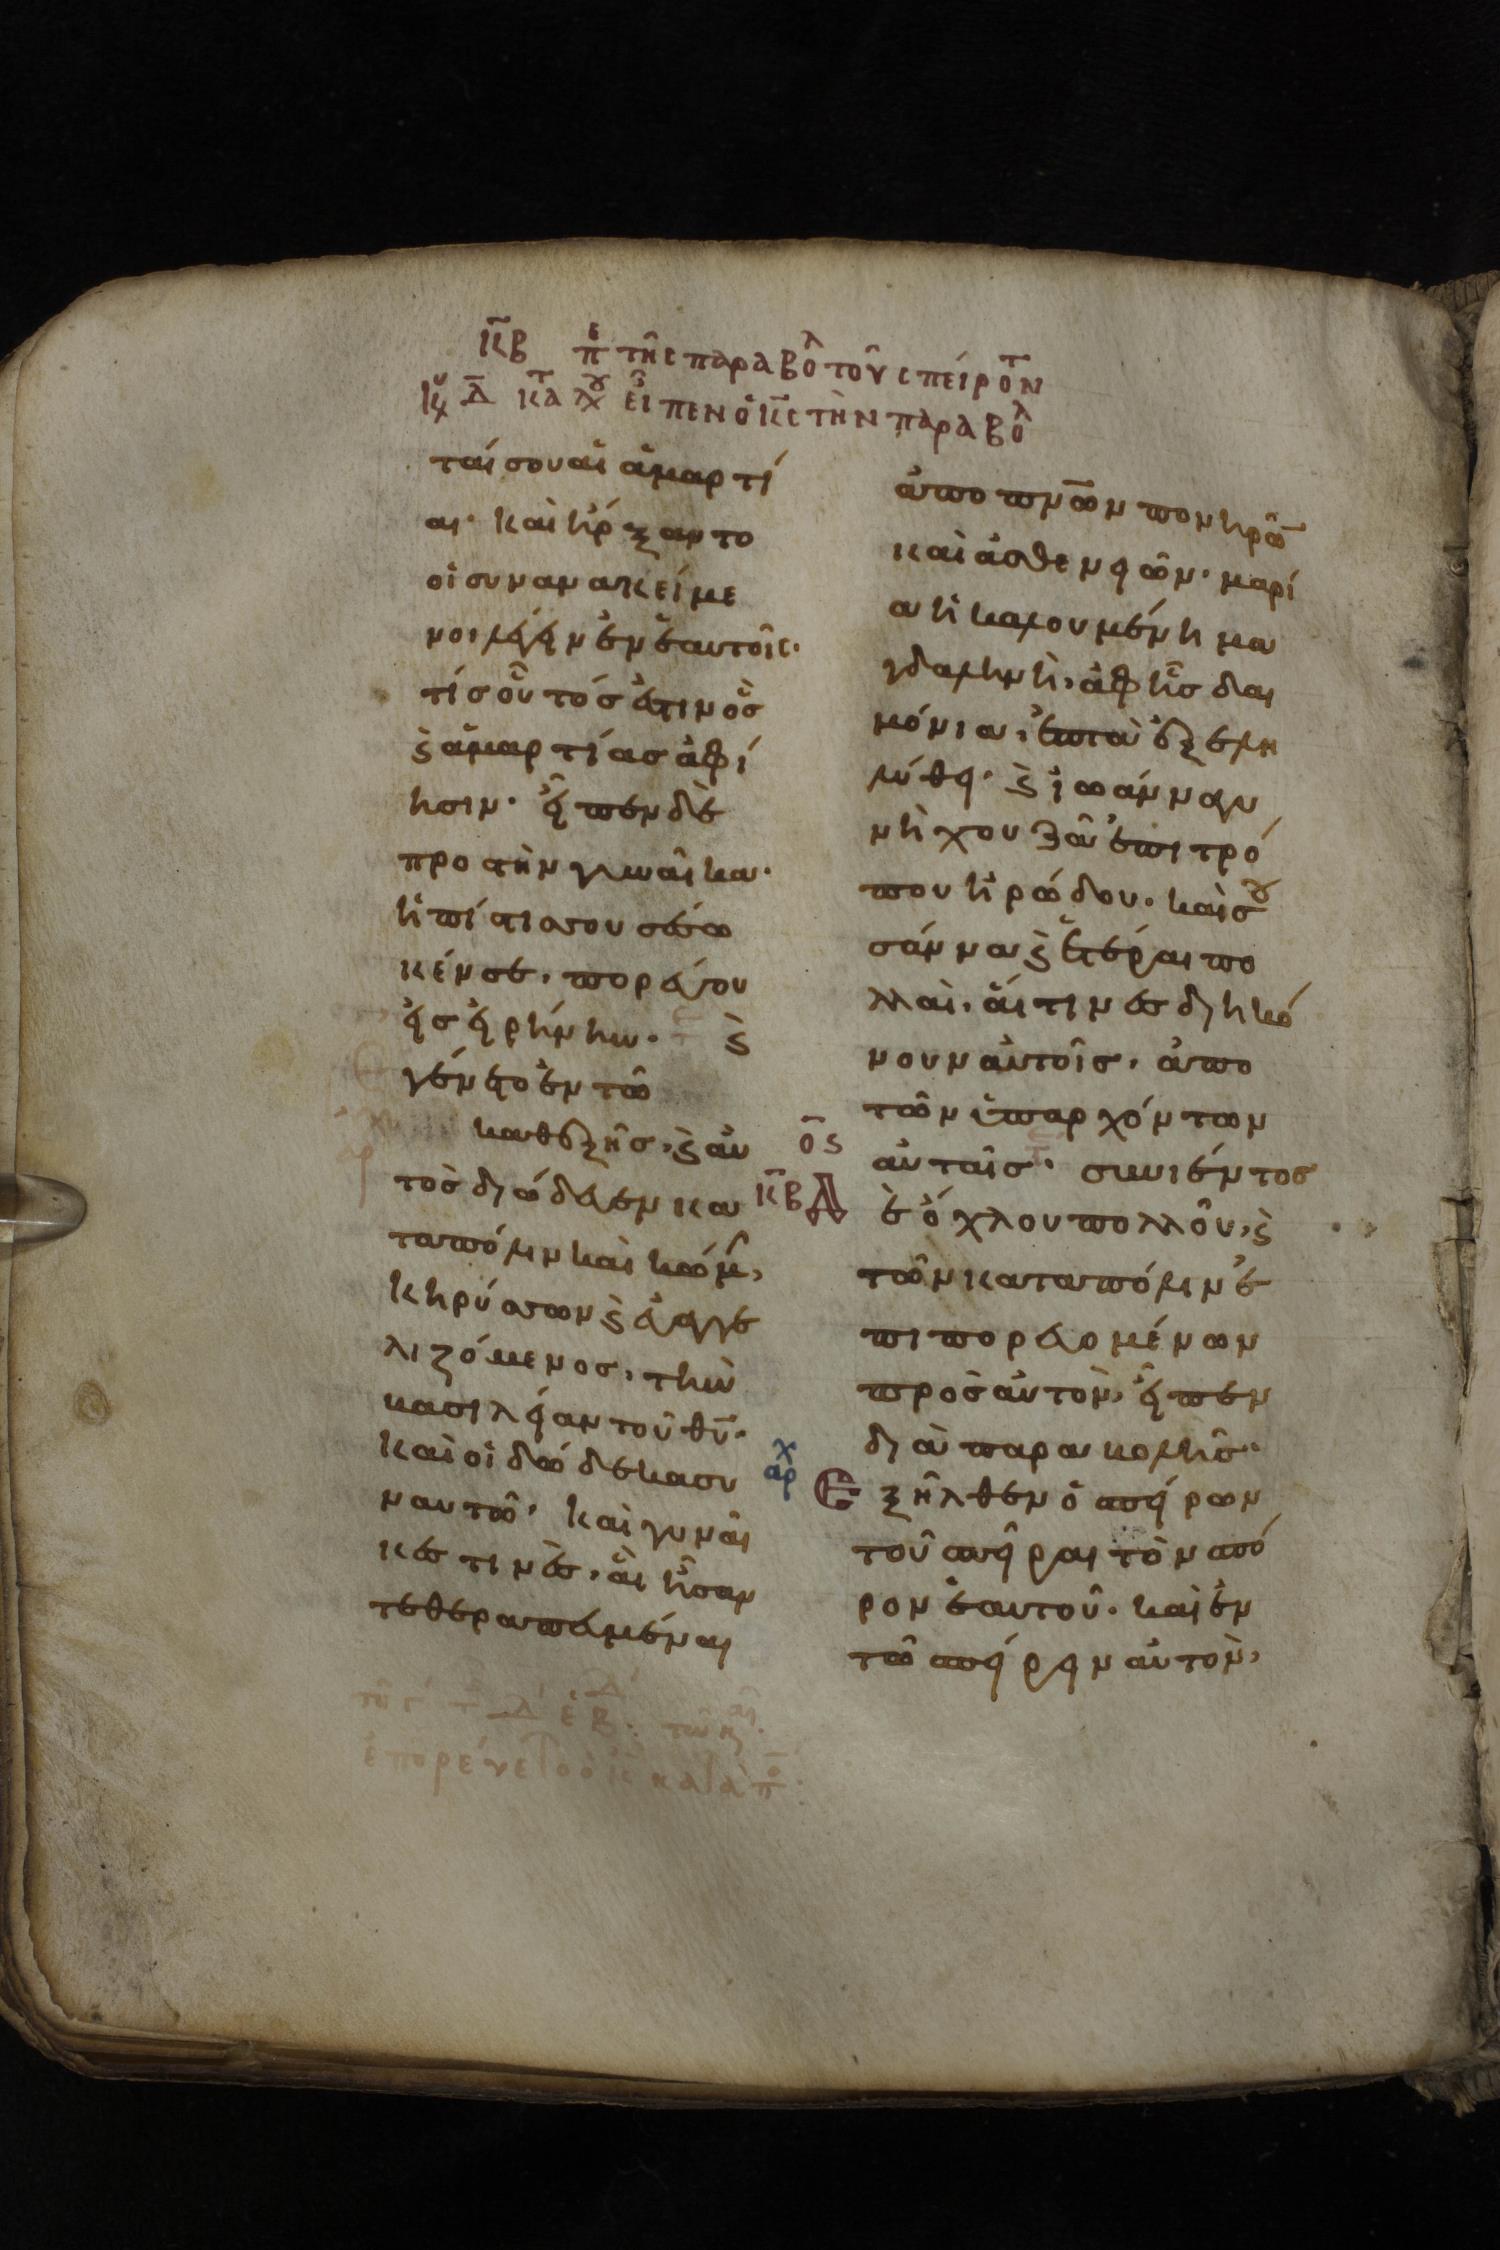 κβ πε της παραβολ του σπείροντ
κυ δ κατ λου εἶπεν ὁ κς τὴν παραβολ
ταί σου αἱ ἁμαρτί
αι· καὶ ἤρξαντο
οἱ συνανακείμε
νοι λέγειν ἐν ἑαυτοῖς·
τίς οὗτός ἐστιν ὃς
ϗ ἁμαρτίας ἀφί
ησιν· εἶπεν δὲ
προσ τὴν γυναῖκα·
ἡ πίστις σου σέσω
κέν σε, πορεύου
εἰς εἰρήνην· ϗ
γένετο ἐν τῶ
καθεξῆς, ϗ αὐ
τὸς διώδευεν κα
τα πόλιν καὶ κώμ,
κηρύσσων ϗ εὐαγγε
λιζόμενος, τὴν
βασιλείαν τοῦ θυ·
καὶ οἱ δώδεκα συ
ν αυτῶ· καὶ γυναῖ
κές τινὲς, αἳ ἦσαν
τεθεραπευμέναι
ἀπο πνων πονηρῶ
καὶ ἀσθενειῶν· μαρί
α ἡ καλουμένη μα
γδαληνὴ, ἀφ ἧς δαι
μόνια, ἑπτὰ ἐξελη
λύθει· ϗ ἰωάννα γυ
νὴ χουζᾶ ἐπιτρό
που ἡρώδου· καὶ σου
σάννα ϗ ἕτεραι πο
λλαὶ, αἵτινες διηκό
νουν αὐτοῖς, ἀπο
τῶν ὑπαρχόντων
αὐταῖς· συνιέντος
ος
κβ Δ ὲ ὄχλου πολλοῦ, ϗ
τῶν κατα πόλιν ἐ
πιπορευομένων
πρὸς αὐτὸν, εἶπεν
διὰ παραβολῆς·
αρχ Ἐξῆλθεν ὁ σπείρων
τοῦ σπεῖραι τὸν σπό
ρον ἑαυτοῦ· καὶ ἐν
τῶ σπείρειν αὐτὸν,
ἐπορεύετο ὁ ις κατα π